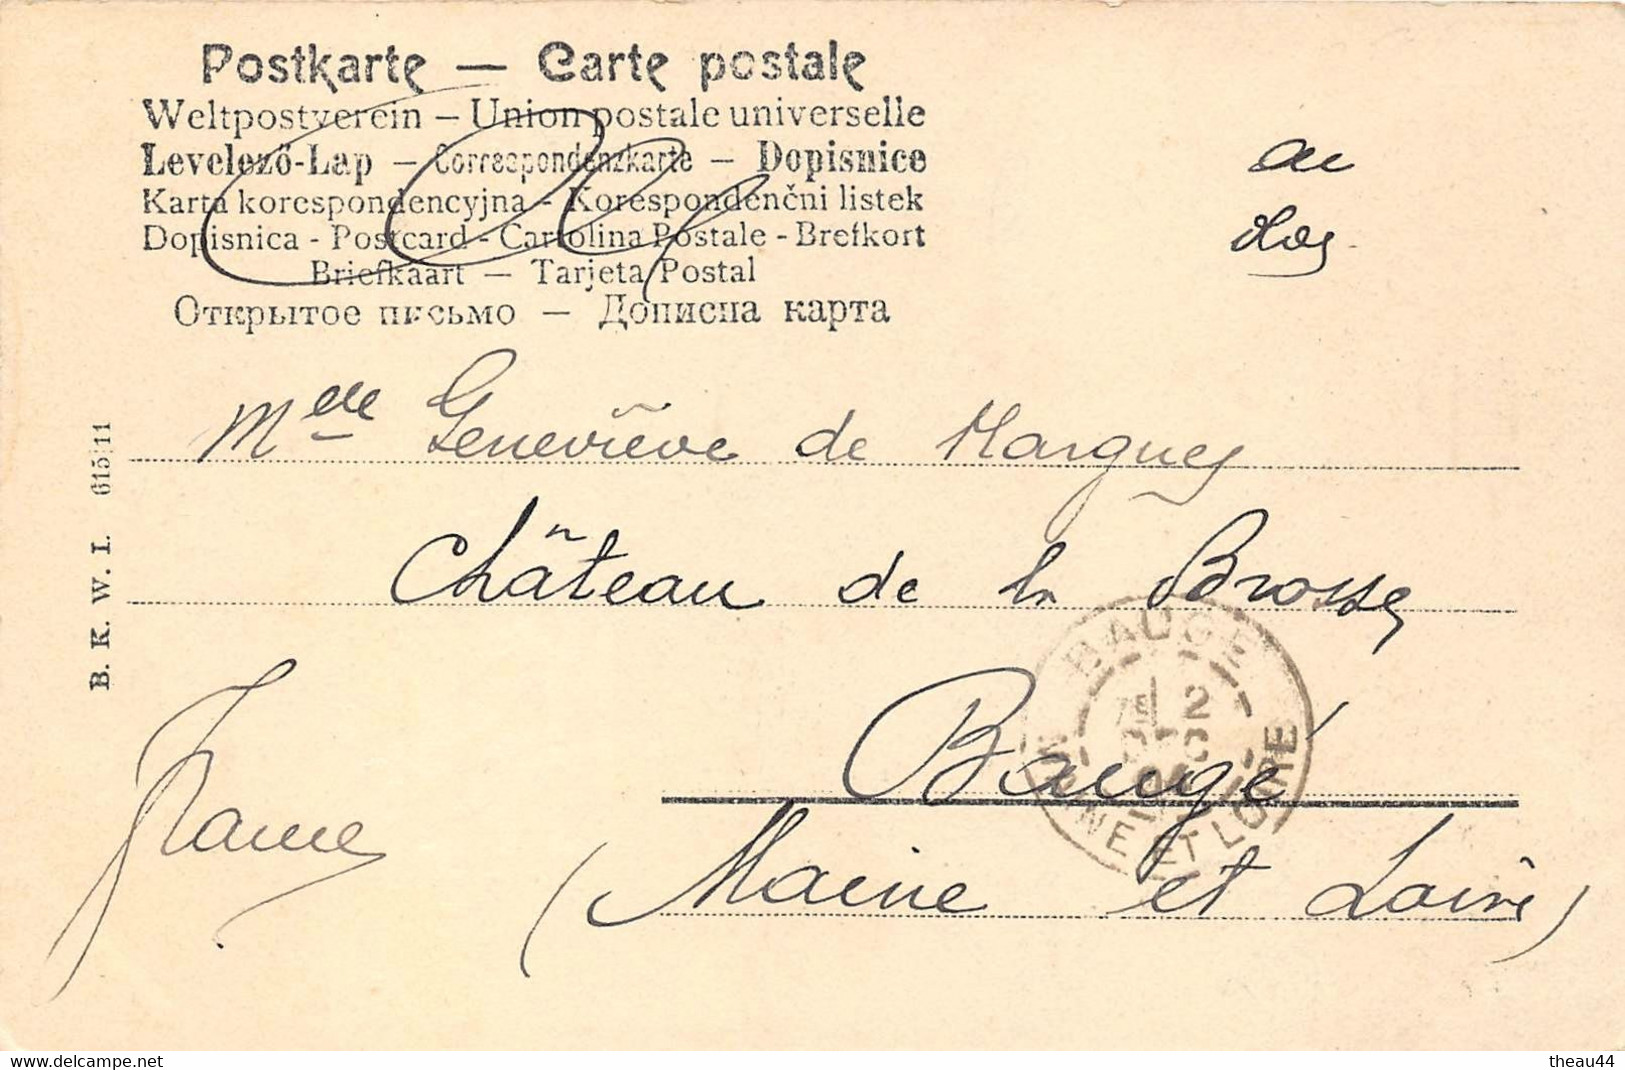 Postkarte — Carte postale
Weltpostverein – Union postale universelle
Levelező-Lap – Correspondenzkarte – Dopisnice
Karta korespondencyjna - Korespondenční listek
Dopisnica - Postcard - Cartolina Postale - Brefkort
Briefkaart — Tarjeta Postal
Открытое письмо — Дописна карта
au
dos
Mlle Geneviève de Marguey
Château de la Brosse
Baugé
(Maine et Loire)
France
B. K. W. I. 615/11
BAUGE
2
DEC
MAINE ET LOIRE
https://www.delcampe.net
theau44